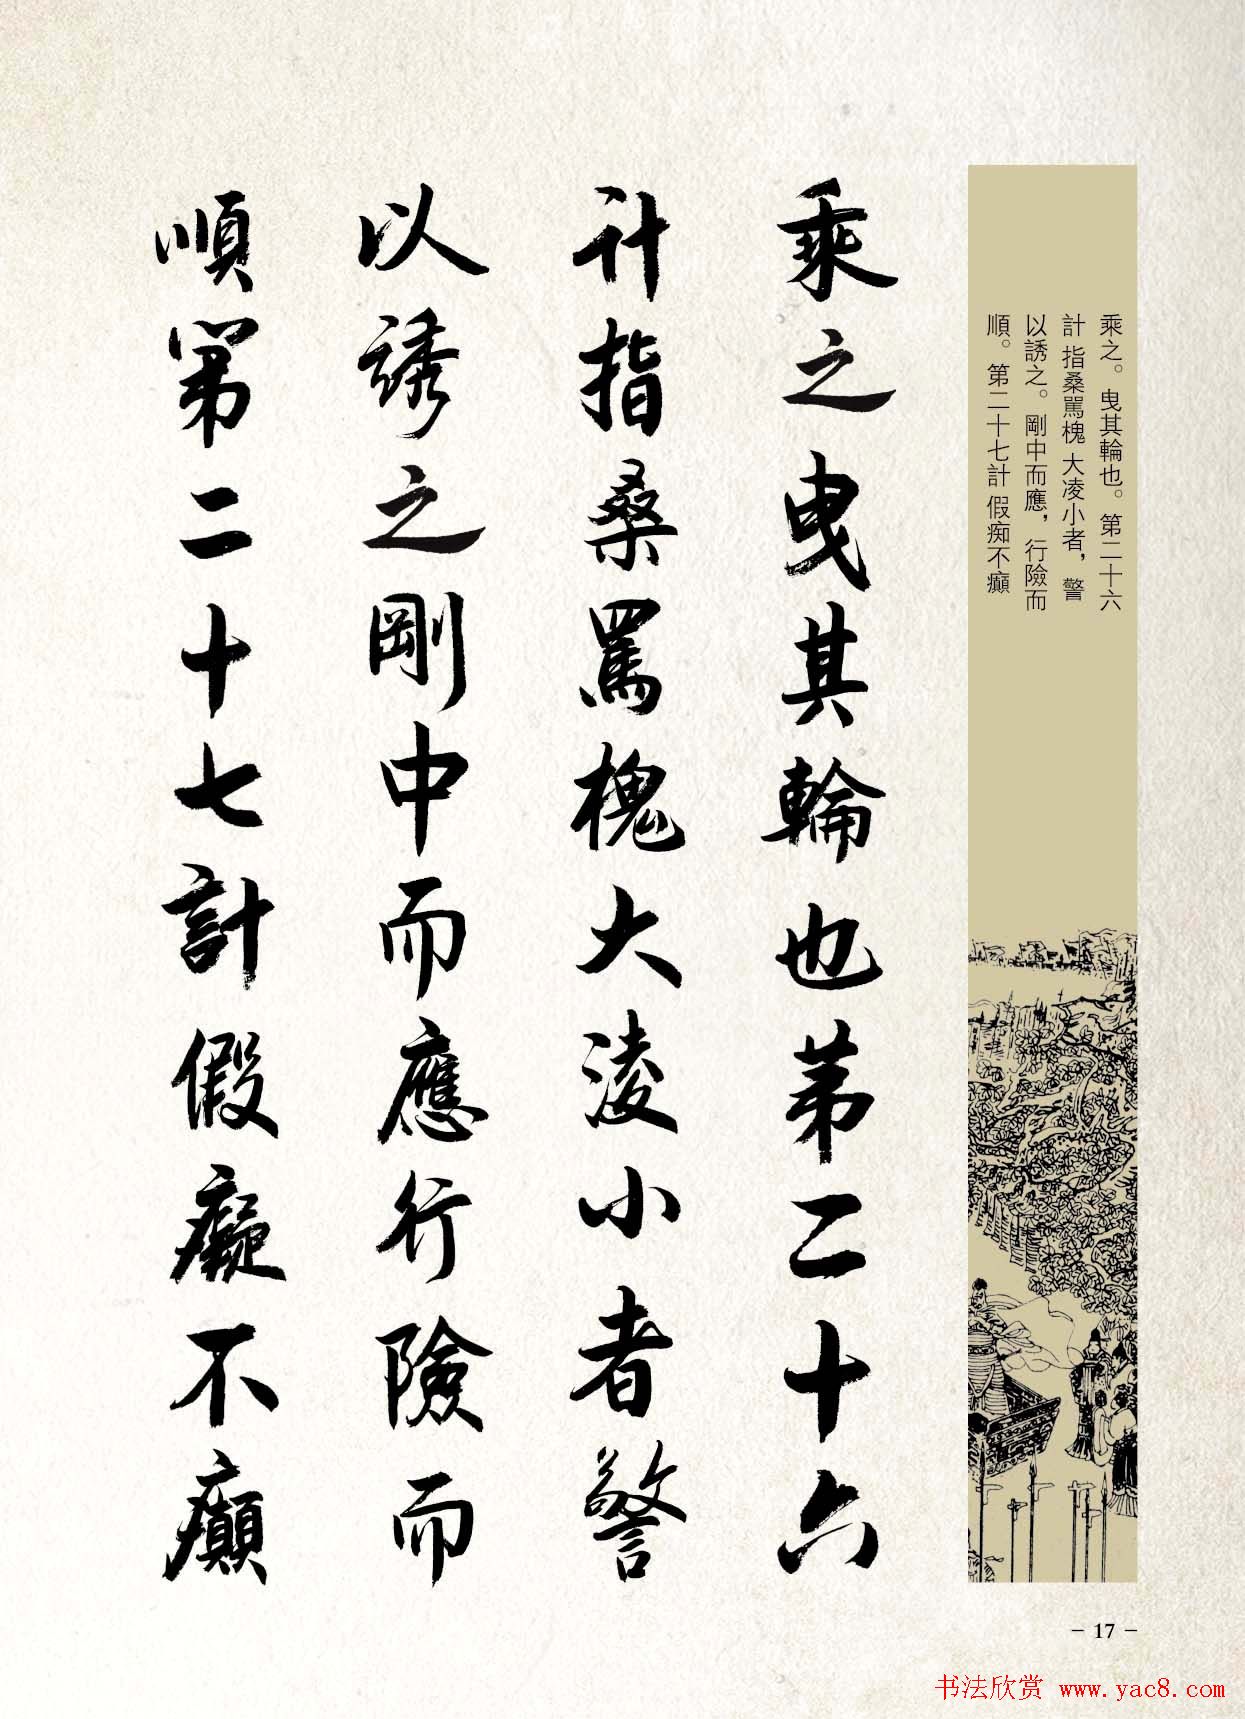 乘之曳其輪也第二十六
计指桑罵槐大淩小者警
以誘之剛中而應行險而
順第二十七計假癡不癲
乘之。曳其輪也。第二十六
計 指桑罵槐 大凌小者，警
以誘之。剛中而應，行險而
順。第二十七計 假痴不癲
- 17 -
书法欣赏 www.yac8.com